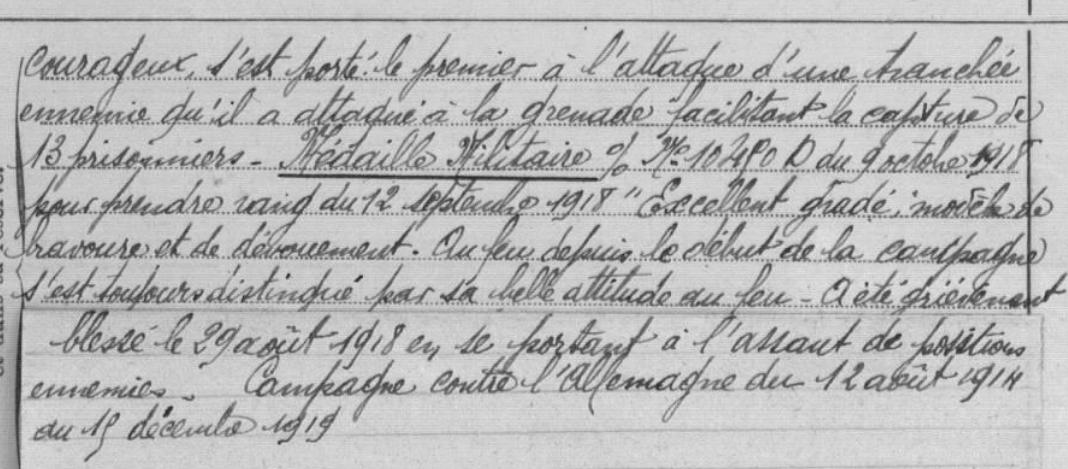 courageux, s'est porté le premier à l'attaque d'une tranchée
ennemie qu'il a attaqué à la grenade facilitant la capture de
13 prisonniers - Médaille Militaire % No 10480 D du 9 octobre 1918
pour prendre rang du 12 septembre 1918 "Excellent gradé, modèle de
bravoure et de dévouement. Au feu depuis le début de la campagne
s'est toujours distingué par sa belle attitude au feu - A été grièvement
blessé le 29 août 1918 en se portant à l'assaut de positions
ennemies. Campagne contre l'Allemagne du 12 août 1914
au 15 décembre 1919